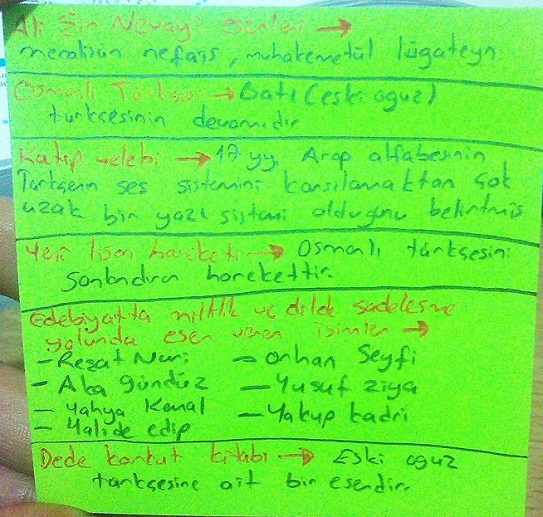 Ali Şin Nevayi eserleri →
mecalisün nefais, muhakemetül lügateyn
Osmanlı Türkçesi → Batı (eski oguz)
türkçesinin devamıdır
Katip çelebi → 17 yy, Arap alfabesinin
Türkçenin ses sistemini karsılamaktan çok
uzak bir yazı sistemi oldugunu belirtmis
Yeni lisan hareketi → Osmanlı türkçesini
Sonlandıran harekettir.
Edebiyatta millilik ve dilde sadelesme
yolunda eser veren isimler →
- Reşat Nuri
- Orhan Seyfi
- Aka gündüz
- Yusuf ziya
- Yahya Kemal
- Yakup kadri
- Halide edip
Dede korkut kitabı → Eski oguz
türkçesine ait bir eserdir.